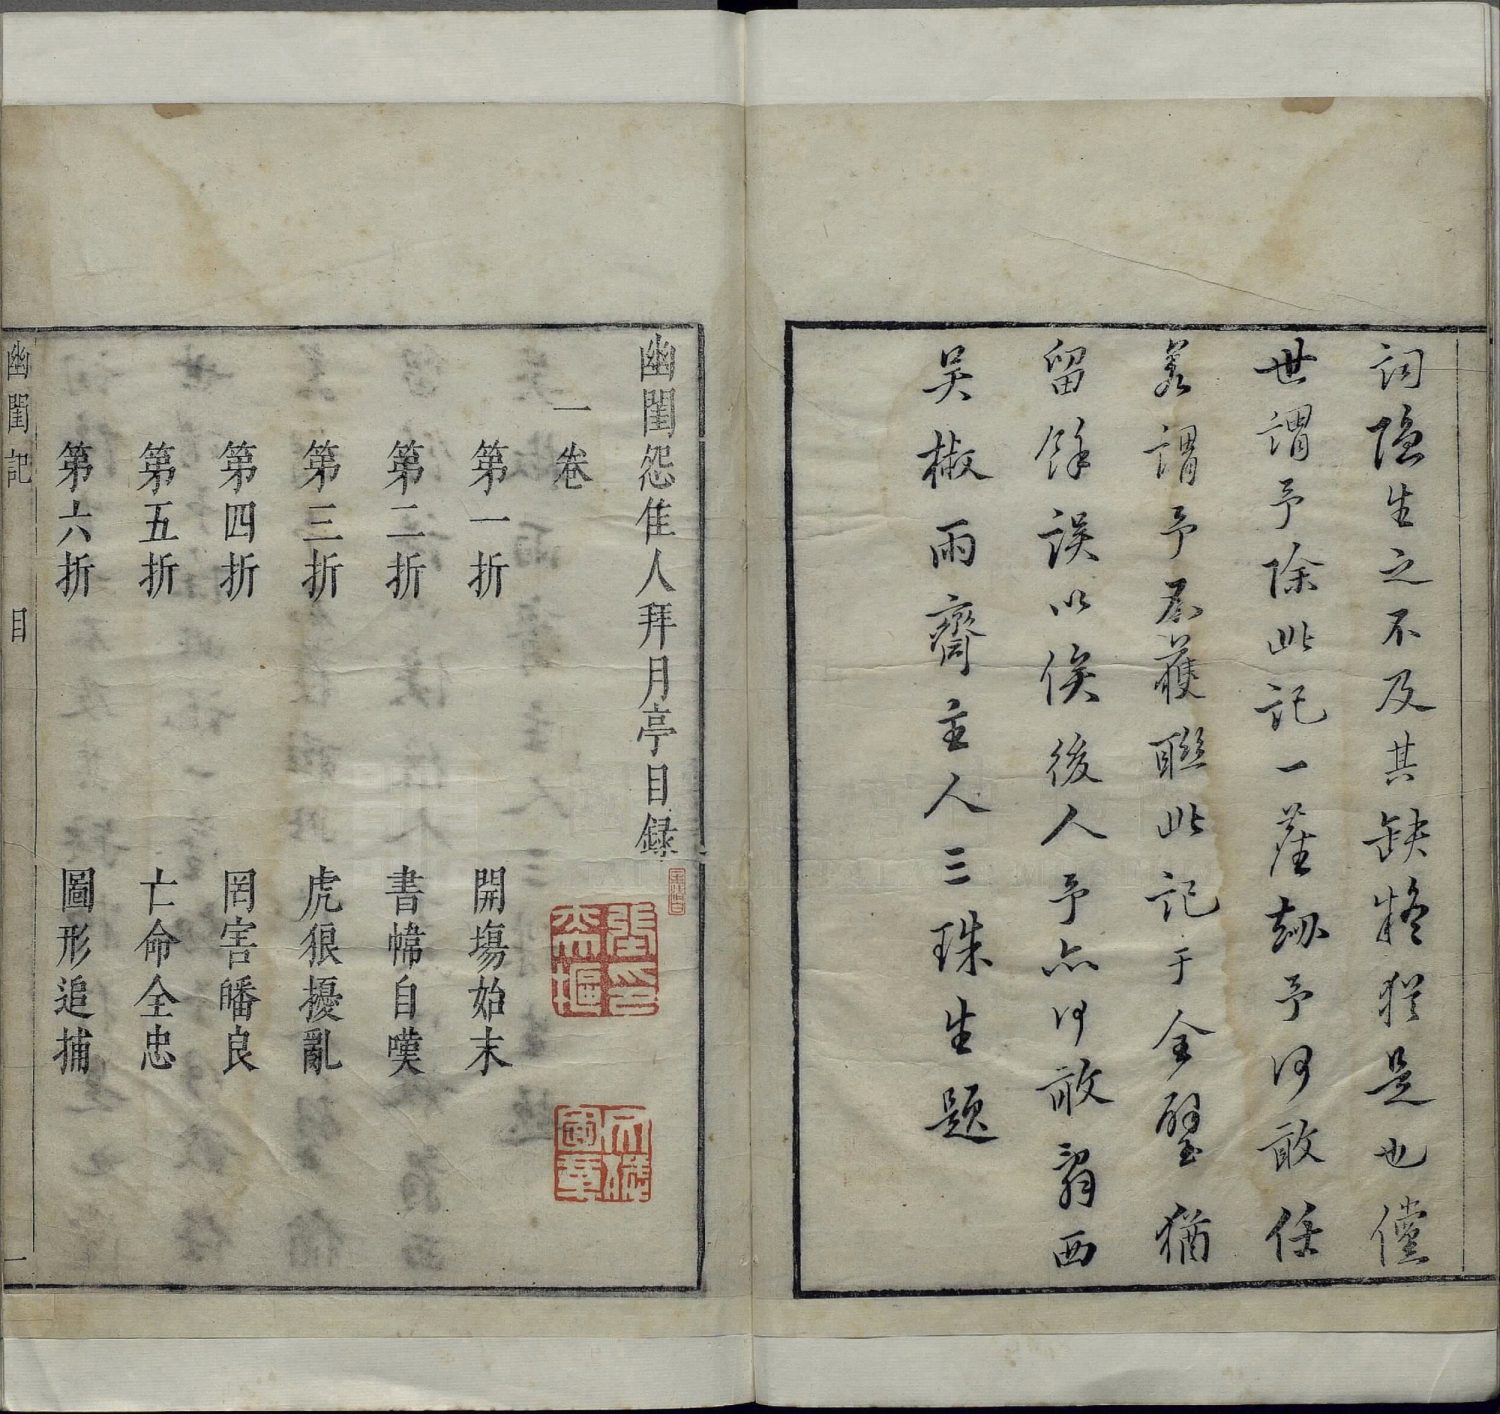 詞隐生之不及其缺疑猶是也儻
世謂予除此記一厓劫予何敢任
若謂予不獲聯此記于全璧猶
留餘誤以俟後人予亦何敢辭西
吴椒雨齋主人三珠生題
幽閨怨佳人拜月亭目録
一卷
第一折 開場始末
第二折 書幃自嘆
第三折 虎狼擾亂
第四折 罔害皤良
第五折 亡命全忠
第六折 圖形追捕
幽閨記 目 一